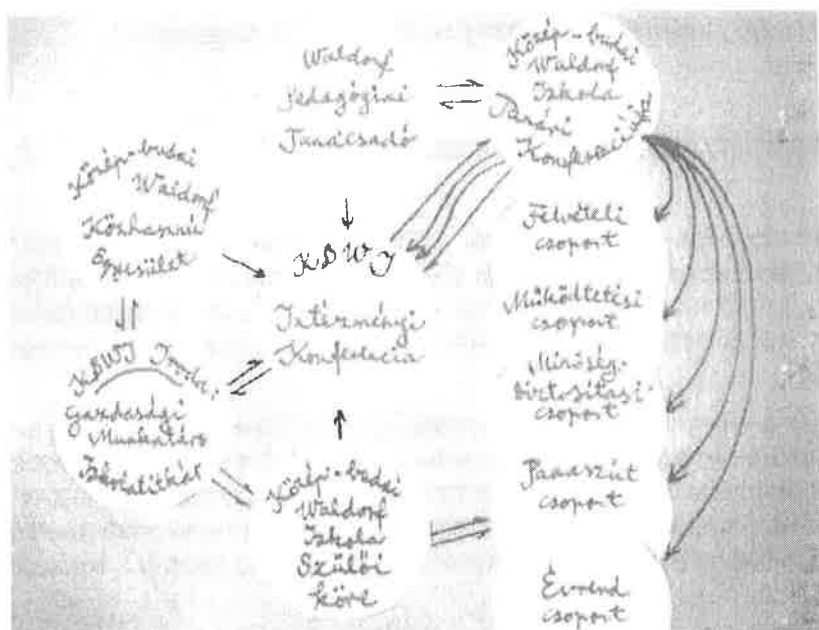 Waldorf
Pedagógiai
Tanácsadó
Közép-budai
Waldorf
Iskola
Tanári
Konferenciája
Közép-budai
Waldorf
Közhasznú
Egyesület
KBWI
Intézményi
Konferencia
KBWI Iroda:
Gazdasági
Munkatárs
Iskolatitkár
Közép-budai
Waldorf
Iskola
Szülői
köre
Felvételi
csoport
Működtetési
csoport
Minőség-
biztosítási
csoport
Panaszút
csoport
Évrend
csoport